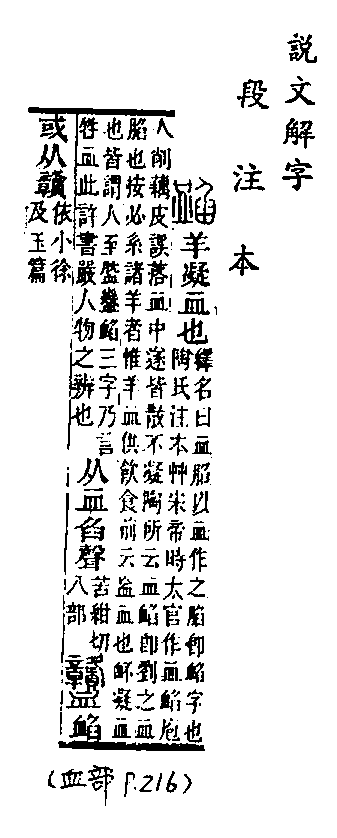 說文解字
段注本
羊凝血也
釋名曰血䐄以血作之䐄卽䘓字也
陶氏注本艸宋帝時太官作血䘓庖
人削藕皮誤落血中遂皆散不凝陶所云血䘓卽劉之血
䐄也按必系諸羊者惟羊血供飲食前云衁血也衃凝血
也皆謂人至䘓三字乃言
牲血此許書嚴人物之辨也
从血臽聲
苦紺切
八部
䘓
或从贛
依小徐
及玉篇
(血部 P.216)